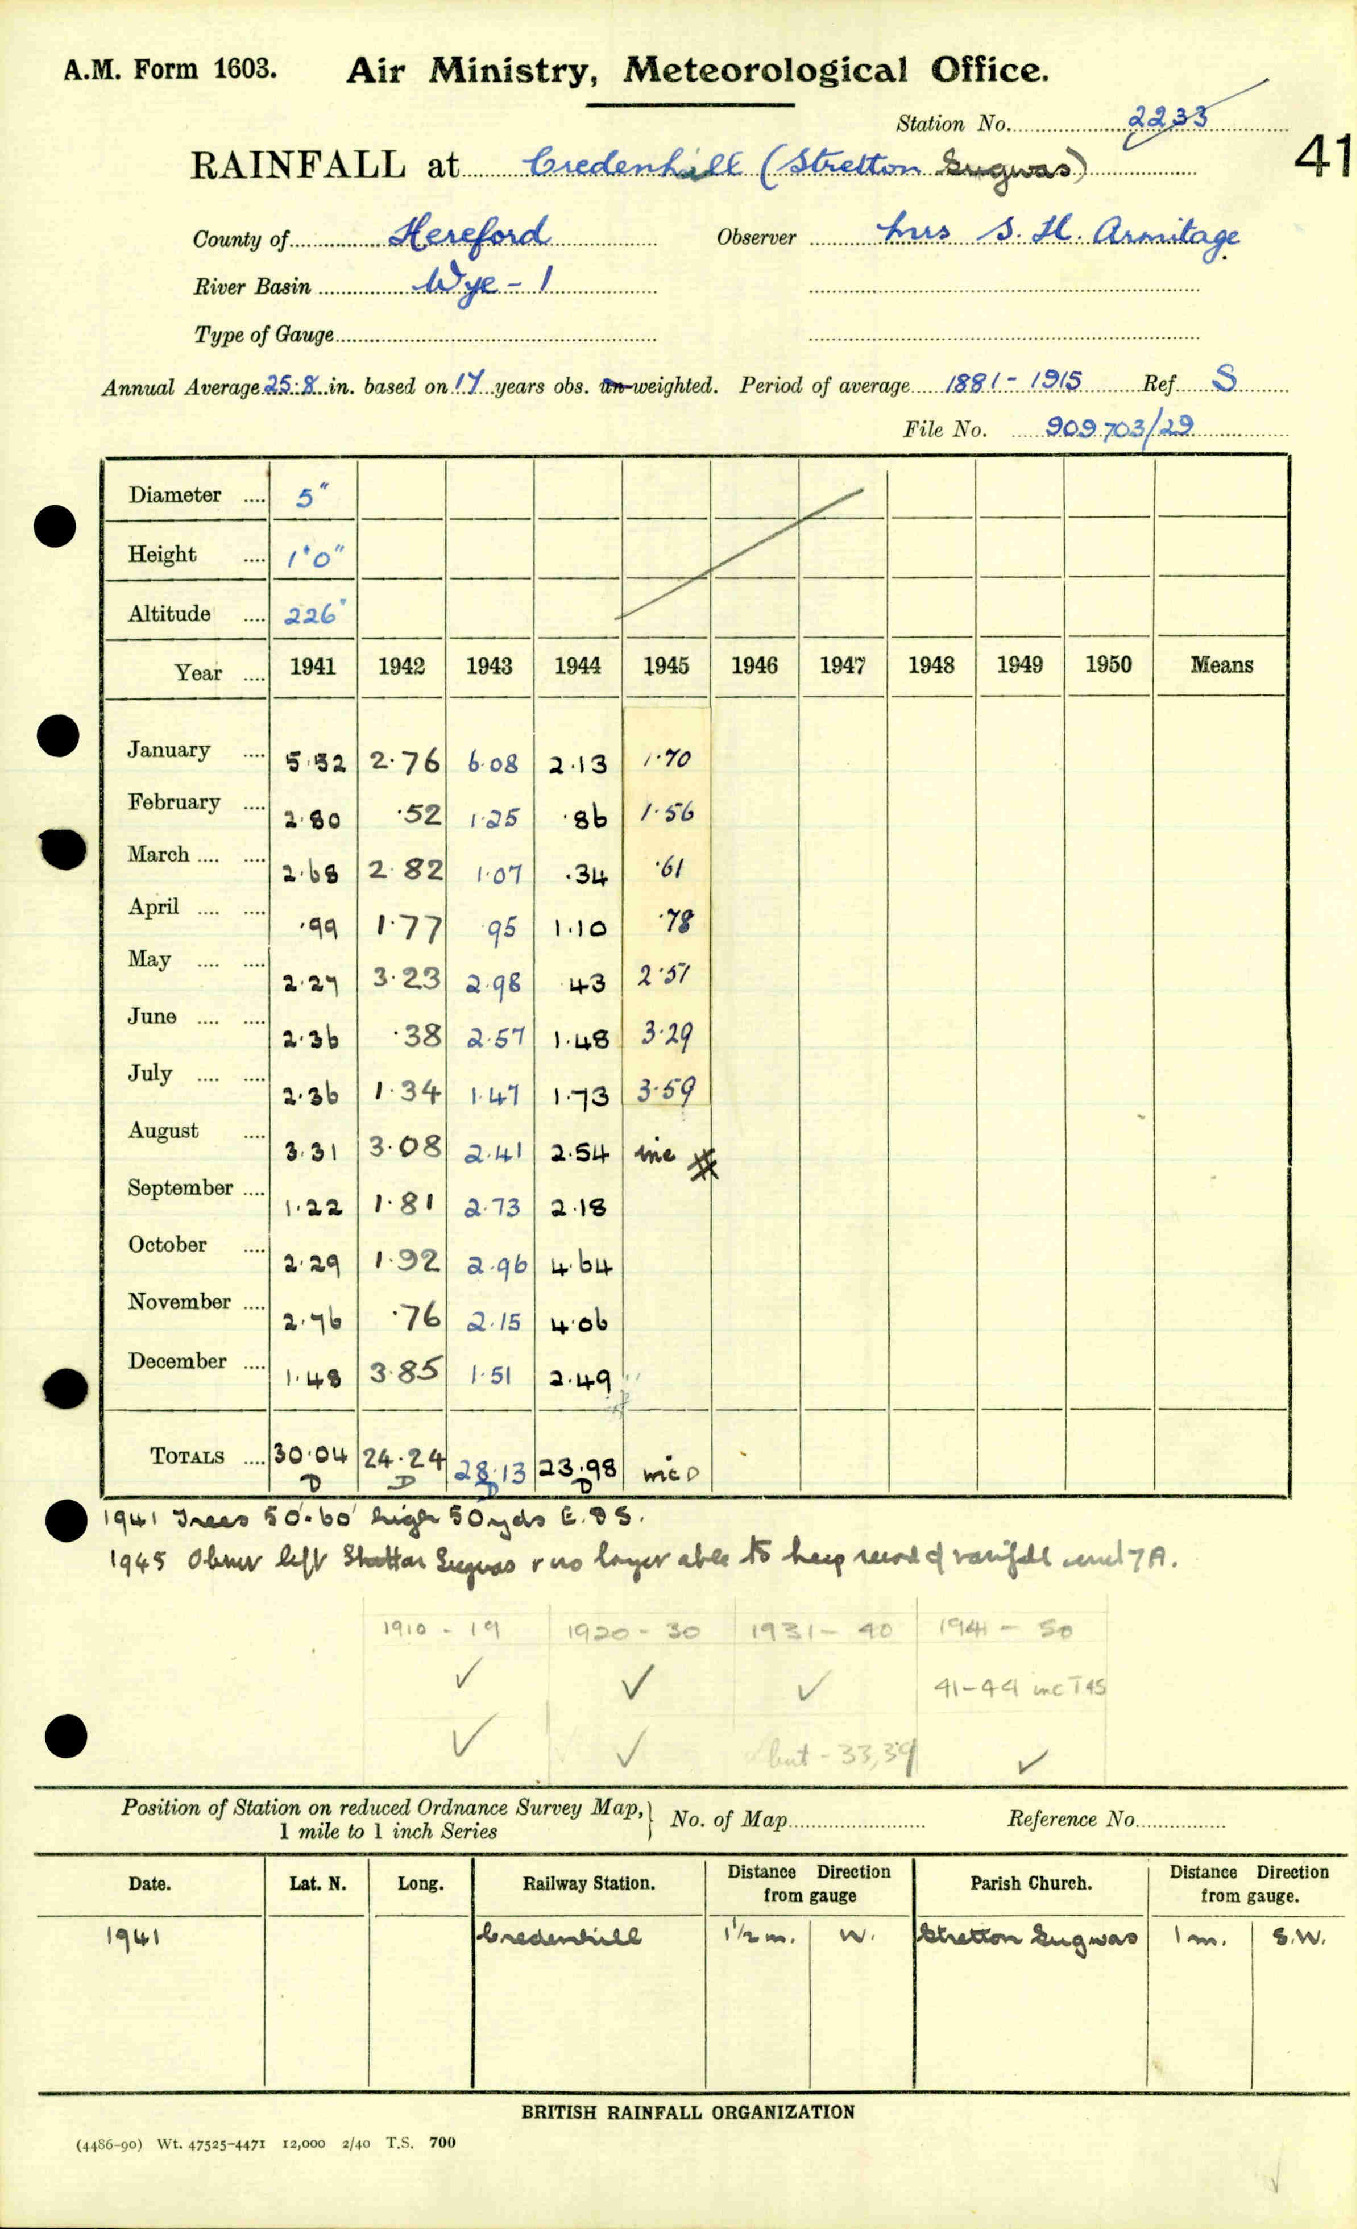 A.M. Form 1603. Air Ministry, Meteorological Office.
Station No. 2233
41
RAINFALL at Credenhill (Stretton Sugwas)
County of Hereford Observer Mrs S. H. Armitage
River Basin Wye - 1
Type of Gauge
Annual Average 25.8 in. based on 17 years obs. un-weighted. Period of average 1881 - 1915 Ref. S
File No. 909703/29
Diameter .... 5"
Height .... 1'0"
Altitude .... 226'
Year .... 1941 1942 1943 1944 1945 1946 1947 1948 1949 1950 Means
January .... 5.52 2.76 6.08 2.13 1.70
February .... 2.80 .52 1.25 .86 1.56
March .... .... 2.68 2.82 1.07 .34 .61
April .... .... .99 1.77 .95 1.10 .78
May .... .... 2.27 3.23 2.98 .43 2.51
June .... .... 2.36 .38 2.57 1.48 3.29
July .... .... 2.36 1.34 1.47 1.73 3.59
August .... 3.31 3.08 2.41 2.54 inc #
September .... 1.22 1.81 2.73 2.18
October .... 2.29 1.92 2.96 4.64
November .... 2.76 .76 2.15 4.06
December .... 1.48 3.85 1.51 2.49
TOTALS .... 30.04 24.24 28.13 23.98 inc D
D D D D
1941 Trees 50'-60' high 50yds E. & S.
1945 Observer left Stretton Sugwas & no longer able to keep record of rainfall until 7A.
1910 - 19 1920 - 30 1931 - 40 1941 - 50
✓ ✓ ✓ 41-44 inc T 45
✓ ✓ but - 33, 39 ✓
Position of Station on reduced Ordnance Survey Map, } No. of Map Reference No.
1 mile to 1 inch Series
Date. Lat. N. Long. Railway Station. Distance Direction from gauge Parish Church. Distance Direction from gauge.
1941 Credenhill 1½m. W. Stretton Sugwas 1m. S.W.
BRITISH RAINFALL ORGANIZATION
(4486-90) Wt. 47525-4471 12,000 2/40 T.S. 700